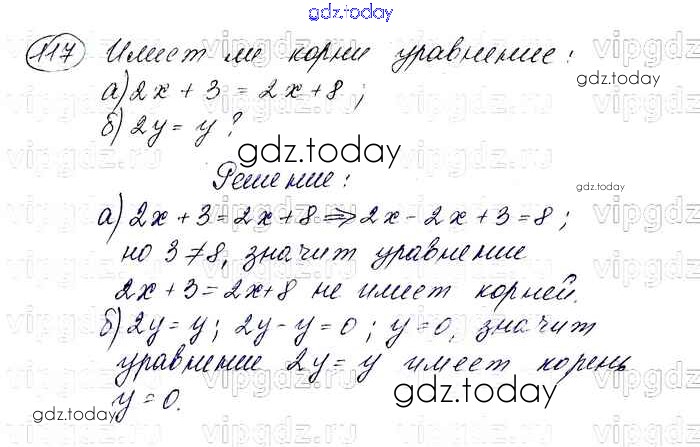 gdz.today
117 Имеет ли корни уравнение:
а) 2x + 3 = 2x + 8 ;
gdz.today
б) 2y = y ?
gdz.today
Решение:
gdz.today
а) 2x + 3 = 2x + 8 => 2x - 2x + 3 = 8 ;
но 3 ≠ 8, значит уравнение
2x + 3 = 2x + 8 не имеет корней.
б) 2y = y ; 2y - y = 0 ; y = 0, значит
уравнение 2y = y имеет корень
y = 0.
gdz.today
gdz.today
gdz.today
vipgdz.ru